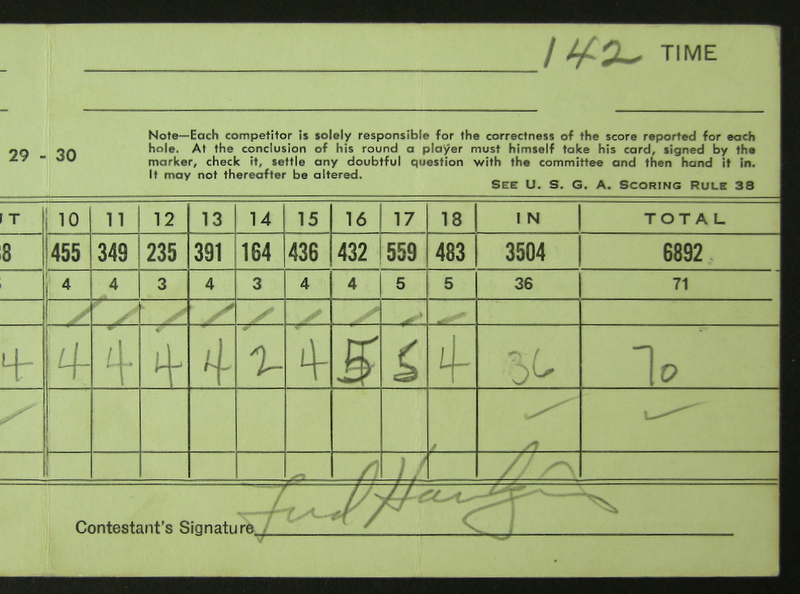 142 TIME
Note—Each competitor is solely responsible for the correctness of the score reported for each
hole. At the conclusion of his round a player must himself take his card, signed by the
29 - 30
marker, check it, settle any doubtful question with the committee and then hand it in.
It may not thereafter be altered.
SEE U. S. G. A. SCORING RULE 38
UT 10 11 12 13 14 15 16 17 18 IN TOTAL
8 455 349 235 391 164 436 432 559 483 3504 6892
4 4 3 4 3 4 4 5 5 36 71
4 4 4 4 4 2 4 5 5 4 36 70
Contestant's Signature